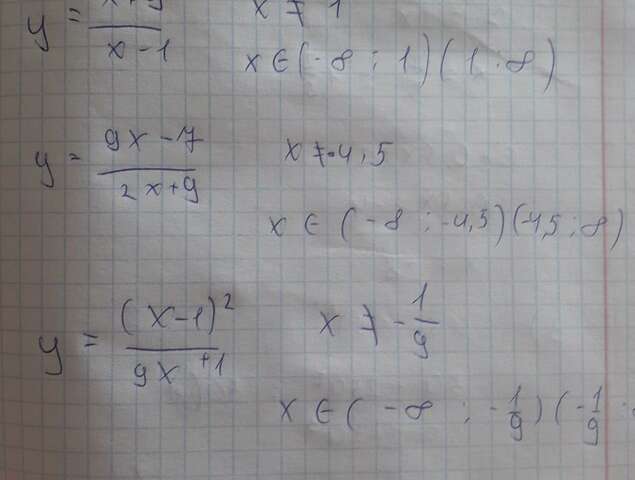 y = x+9 / x-1 x ≠ 1
x ∈ (-∞ ; 1) (1 ; ∞)
y = 9x-7 / 2x+9 x ≠ -4,5
x ∈ (-∞ ; -4,5) (-4,5 ; ∞)
y = (x-1)² / 9x+1 x ≠ -1/9
x ∈ (-∞ ; -1/9) (-1/9 ;